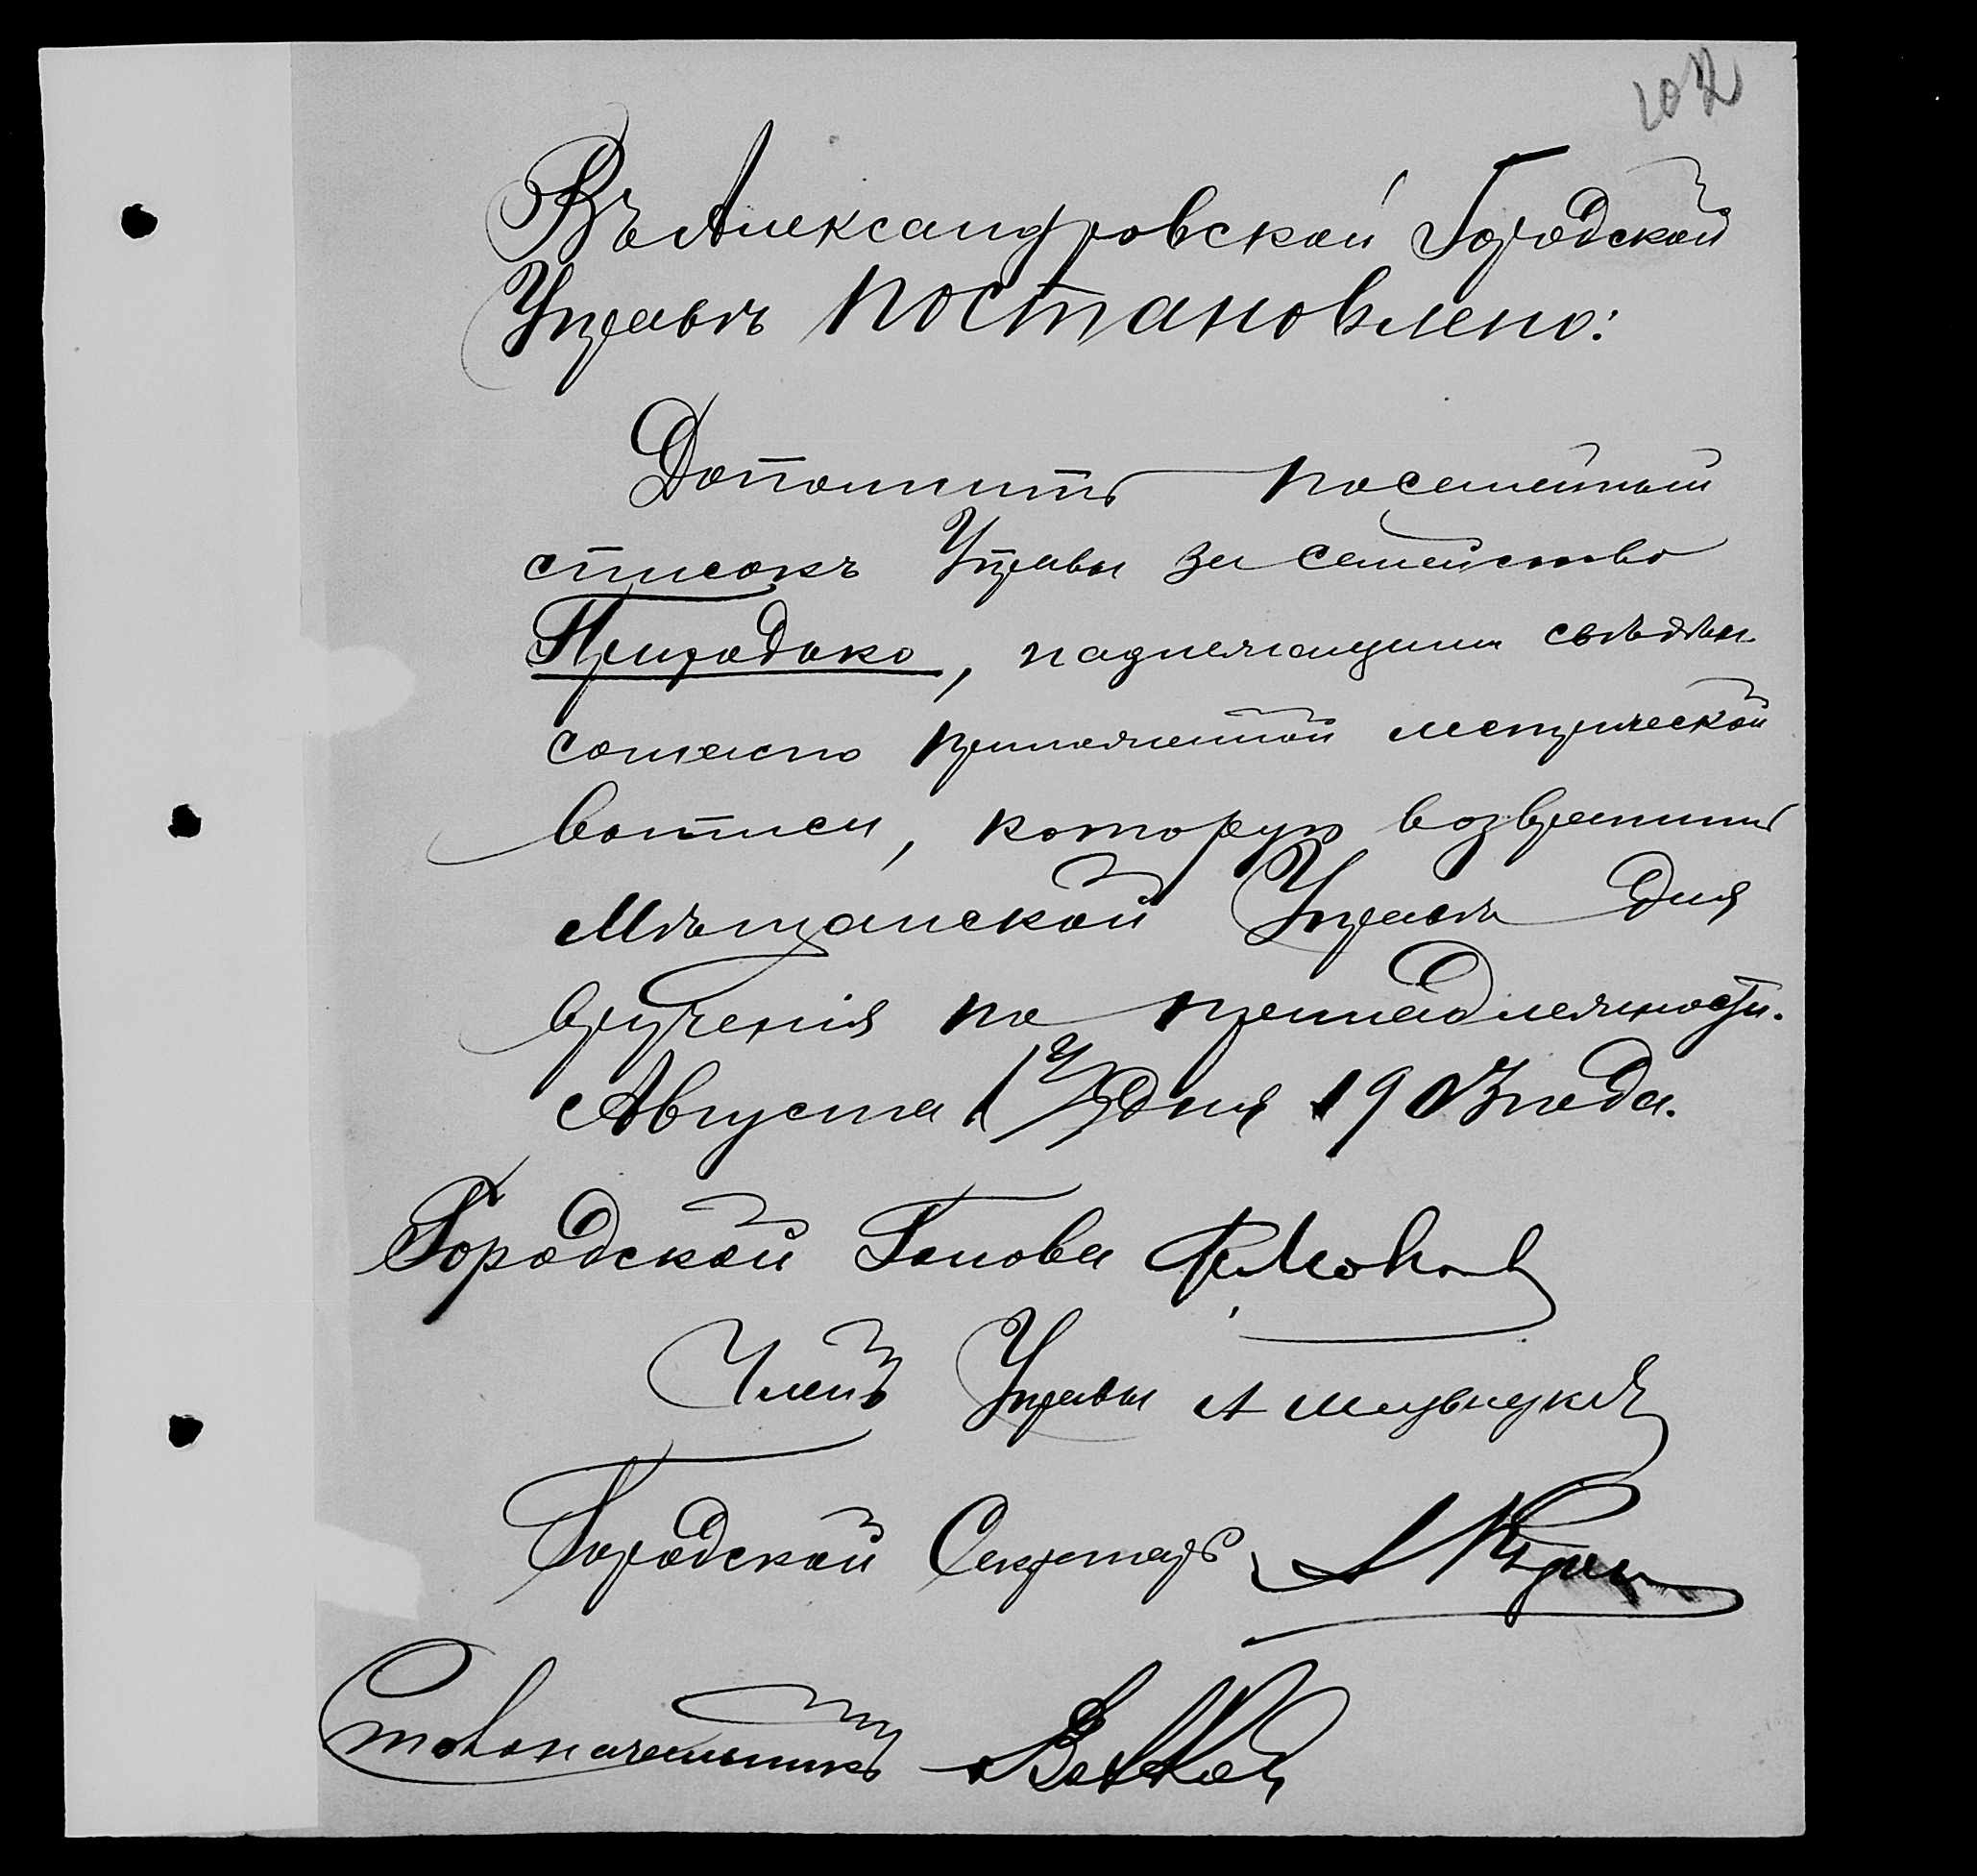 102
Въ Александровской Городской
Управѣ постановлено:
Дополнить посемейный
списокъ Управы за семейство
Природько, надлежащими свѣдѣн.
согласно приложенной метрической
выписи, которую возвратить
Мѣщанской Управѣ для
врученія по принадлежности.
Августа дня 1903 года.
Городской Голова
Членъ Управы А
Городской Секретарь
Столоначальникъ